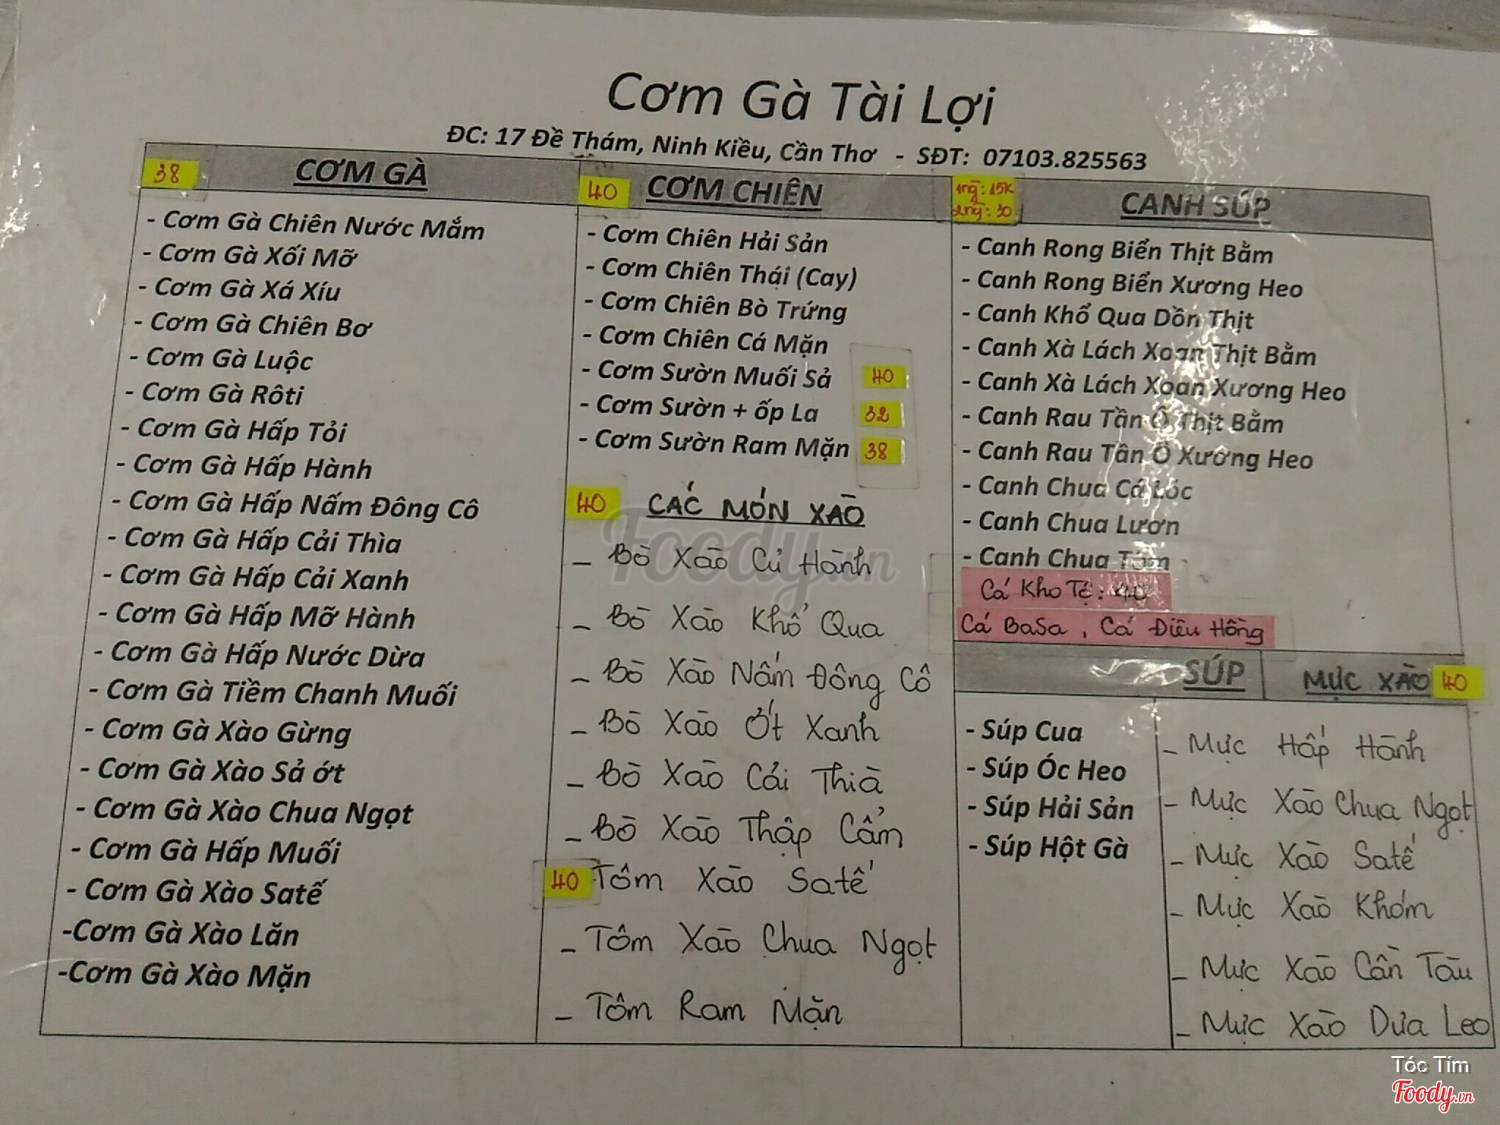 Cơm Gà Tài Lợi
ĐC: 17 Đề Thám, Ninh Kiều, Cần Thơ - SĐT: 07103.825563
38 CƠM GÀ
- Cơm Gà Chiên Nước Mắm
- Cơm Gà Xối Mỡ
- Cơm Gà Xá Xíu
- Cơm Gà Chiên Bơ
- Cơm Gà Luộc
- Cơm Gà Rôti
- Cơm Gà Hấp Tỏi
- Cơm Gà Hấp Hành
- Cơm Gà Hấp Nấm Đông Cô
- Cơm Gà Hấp Cải Thìa
- Cơm Gà Hấp Cải Xanh
- Cơm Gà Hấp Mỡ Hành
- Cơm Gà Hấp Nước Dừa
- Cơm Gà Tiềm Chanh Muối
- Cơm Gà Xào Gừng
- Cơm Gà Xào Sả ớt
- Cơm Gà Xào Chua Ngọt
- Cơm Gà Hấp Muối
- Cơm Gà Xào Satế
-Cơm Gà Xào Lăn
-Cơm Gà Xào Mặn
40 CƠM CHIÊN
- Cơm Chiên Hải Sản
- Cơm Chiên Thái (Cay)
- Cơm Chiên Bò Trứng
- Cơm Chiên Cá Mặn
- Cơm Sườn Muối Sả 40
- Cơm Sườn + ốp La 32
- Cơm Sườn Ram Mặn 38
40 CÁC MÓN XÀO
- Bò Xào Củ Hành
- Bò Xào Khổ Qua
- Bò Xào Nấm Đông Cô
- Bò Xào Ớt Xanh
- Bò Xào Cải Thìa
- Bò Xào Thập Cẩm
40 Tôm Xào Satế
- Tôm Xào Chua Ngọt
- Tôm Ram Mặn
1ng: 15K
2ng: 30
CANH SÚP
- Canh Rong Biển Thịt Bằm
- Canh Rong Biển Xương Heo
- Canh Khổ Qua Dồn Thịt
- Canh Xà Lách Xoan Thịt Bằm
- Canh Xà Lách Xoan Xương Heo
- Canh Rau Tần Ô Thịt Bằm
- Canh Rau Tần Ô Xương Heo
- Canh Chua Cá Lóc
- Canh Chua Lươn
- Canh Chua Tôm
Cá Kho Tộ: 40
Cá BaSa, Cá Điêu Hồng
SÚP
- Súp Cua
- Súp Óc Heo
- Súp Hải Sản
- Súp Hột Gà
MỰC XÀO 40
- Mực Hấp Hành
- Mực Xào Chua Ngọt
- Mực Xào Satế
- Mực Xào Khóm
- Mực Xào Cần Tàu
- Mực Xào Dưa Leo
Foody.vn
Tóc Tím
Foody.vn